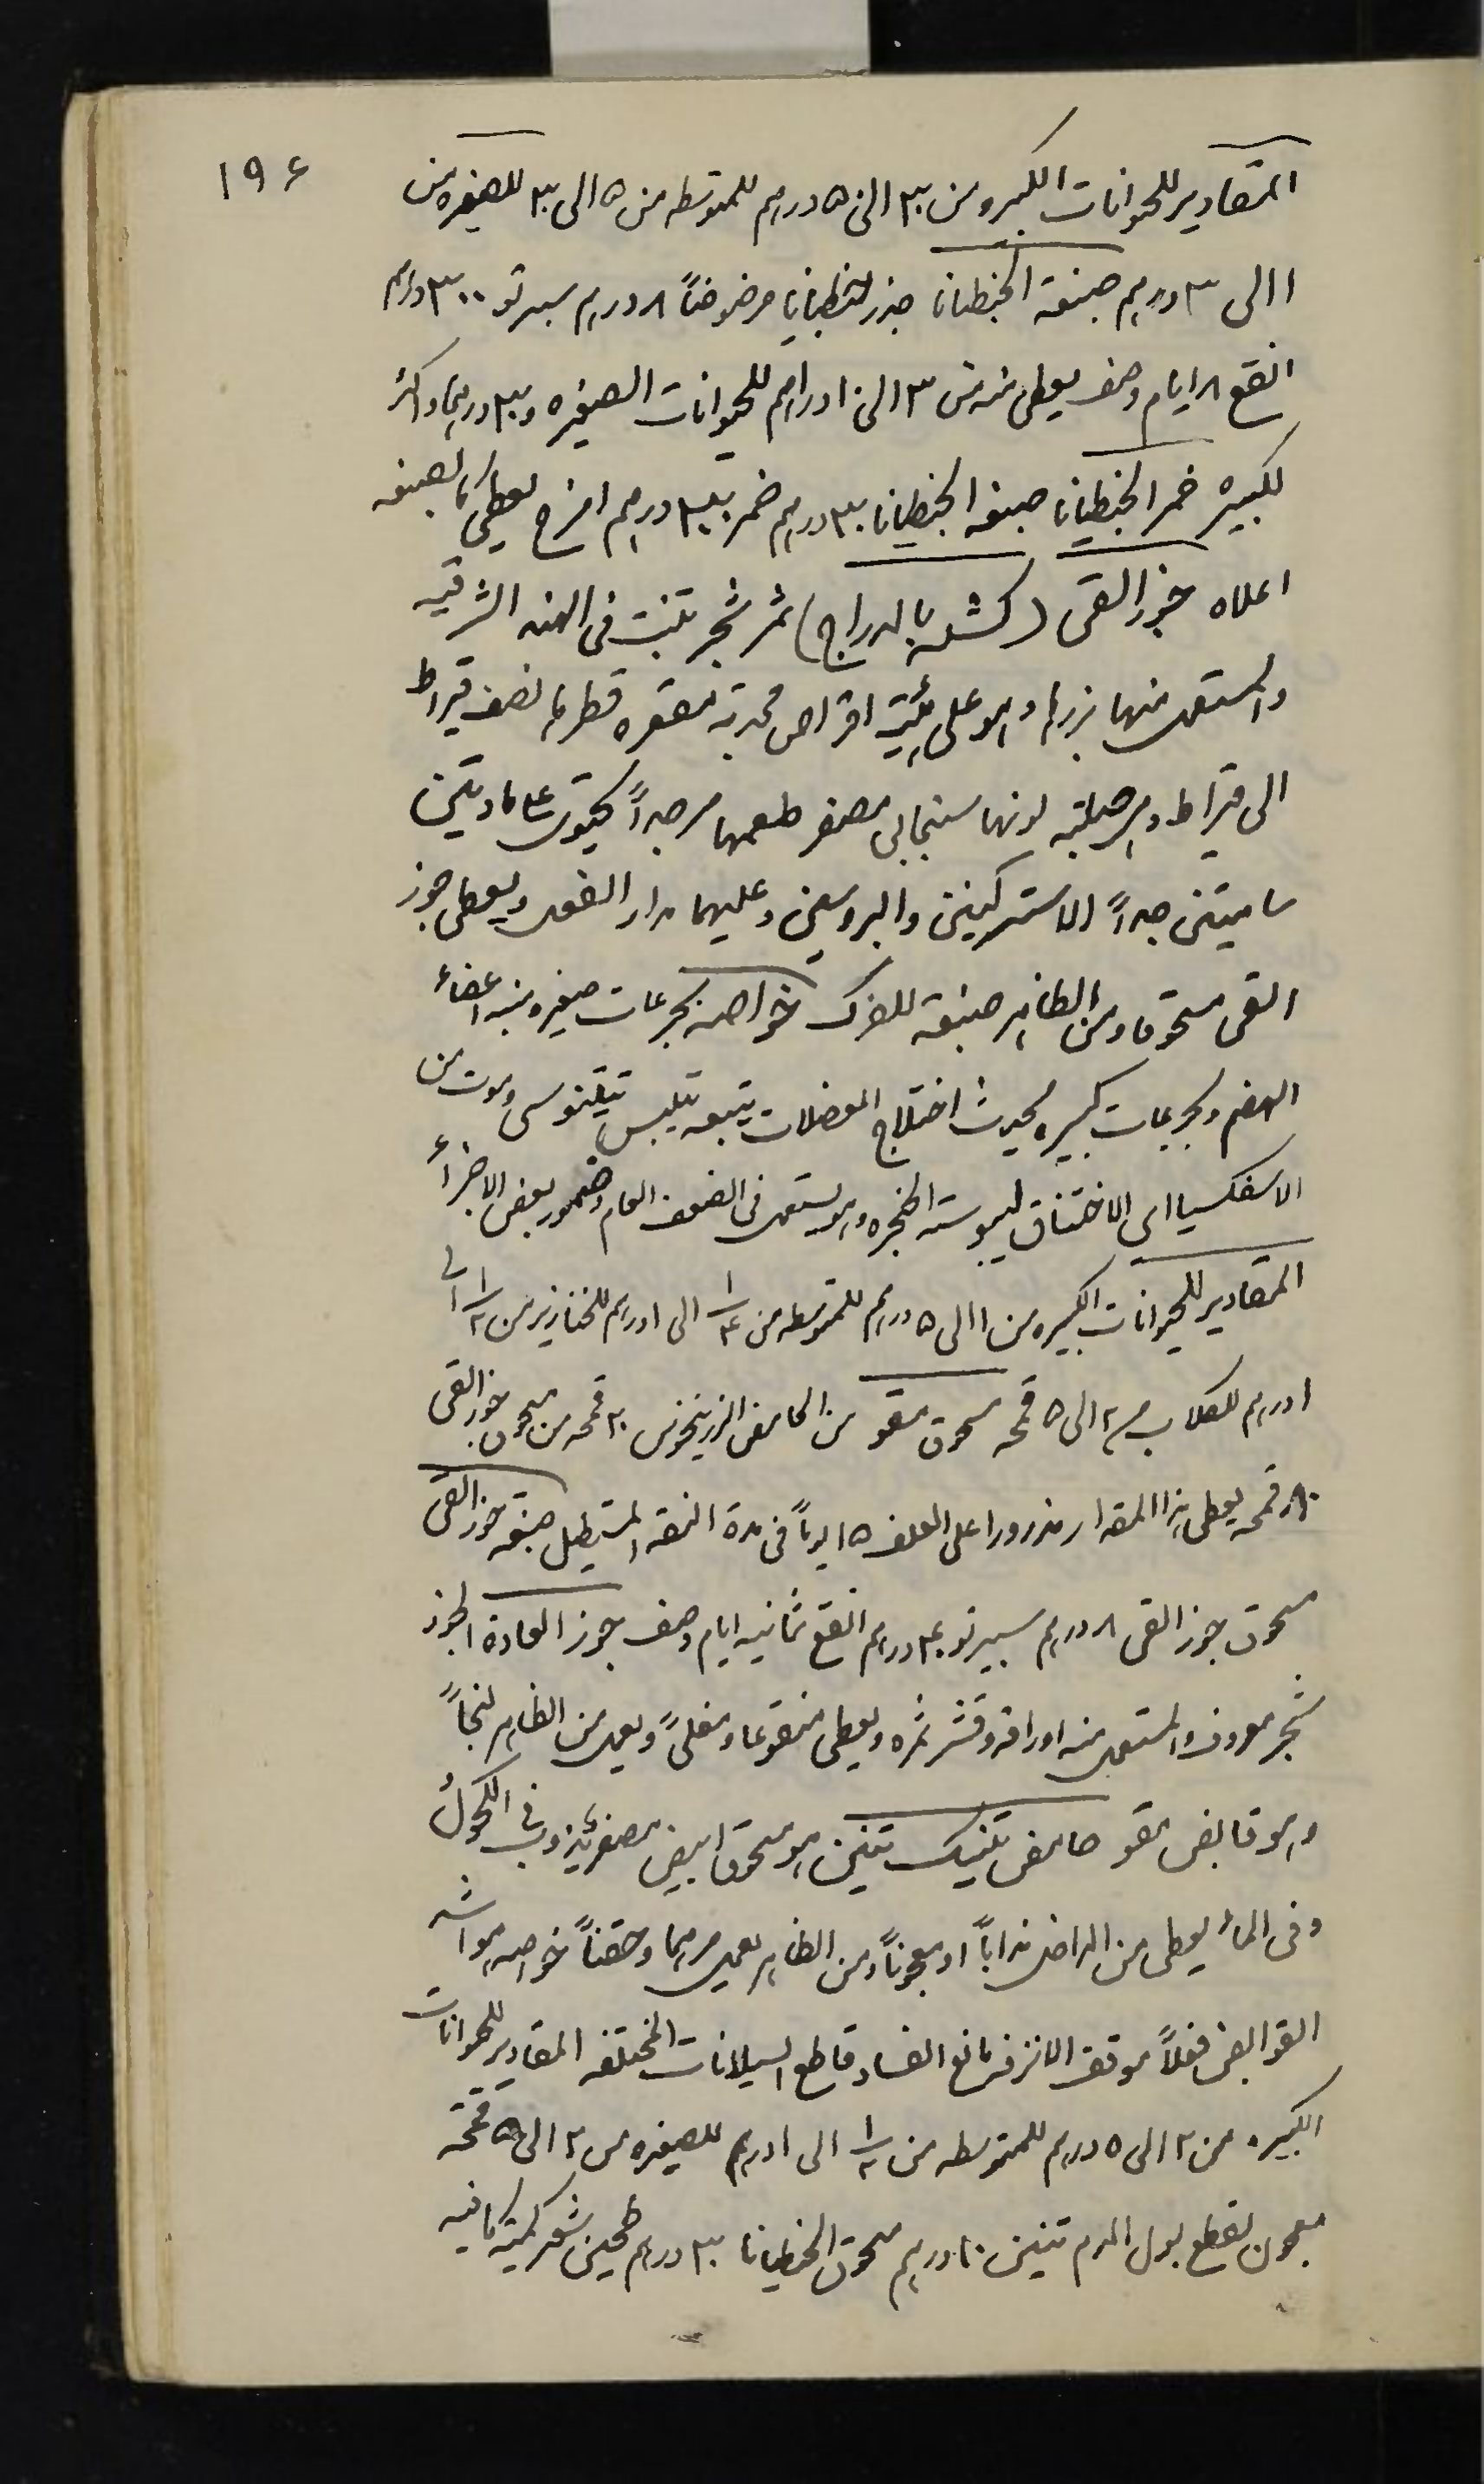 ١٩٤
المقادير للحيوانات الكبيره من ٣٠ الى ٥٠ درهم للمتوسطه من ٥ الى ٣٠ للصغيره من
١ الى ٣ درهم صبغة الجنطيانا جذر الجنطيانا مرضوضاً ٨٠ درهم سبرتو ٣٠٠ درهم
انقع ٨ ايام وصف يعطى منه من ٣ الى ١٠ دراهم للحيوانات الصغيره و٣٠ درهماً واكثر
للكبيره خمر الجنطيانا صبغة الجنطيانا ٣٠ درهم خمر درهم امزج يعطى كالصبغه
اعلاه جوز القى (كشله بالدراج) ثمر شجر تنبت فى الهند الشرقيه
والمستعمل منها بزرها وهو على هيئة اقراص محدبة مقعره قطرها نصف قيراط
الى قيراط وهى صلبه لونها سنجابى مصفر طعمها مر جداً يحتوى على مادتين
ساميتين جداً الاستركينين والبروسين وعليهما مدار الفعل ويعطى جوز
القى مسحوقا ومن الظاهر صبغة للفرك خواصه بجرعات صغيره ينبه اعضاء
الهضم وبجرعات كبيره يحدث اختلاج العضلات يتبعه تيبس تيتنوسى وموت من
الاسفكسيا اى الاختناق ليبوسة الحنجره وهو يستعمل فى الضعف العام وضمور بعض الاجزاء
المقادير للحيوانات الكبيره من ١ الى ٥ درهم للمتوسطه من ١/٤ الى ١ درهم للخنازير من ١/٢ الى
١ درهم للكلاب من ٢ الى ٥ قمحه مسحوق مقو من الحامض الزرنيخوس ٢٠ قمحه من مسحوق جوز القى
٨٠ قمحه يعطى هذا المقدار مذرورا على العلف ١٥ يوماً فى مدة النقه المستطيل صبغة جوز القى
مسحوق جوز القى ٨ درهم سبيرتو ٤٠ درهم انقع ثمانيه ايام وصف جوز العادة الجوز
شجر معروف والمستعمل منه اوراقه وقشر ثمره ويعطى منقوعا ومغلىً ويعمل من الظاهر لبخاً
وهو قابض مقو حامض تنيك تنين هو مسحوق ابيض مصفر يذوب فى الكحول
وفى الماء يعطى من الداخل مذاباً او معجوناً ومن الظاهر يعمل مرهما وحقناً خواصه هو اشد
القوابض فعلاً موقف الانزف مانع الفساد قاطع السيلانات المختلفه المقادير للحيوانات
الكبيره من ٢ الى ٥ درهم للمتوسطه من ١/٢ الى ١ درهم للصغيره من ٢ الى ٥ قمحه
معجون لقطع بول الدم تنين ١٠ درهم مسحوق الجنطيانا ٣٠ درهم طحين شعير كمية كافيه